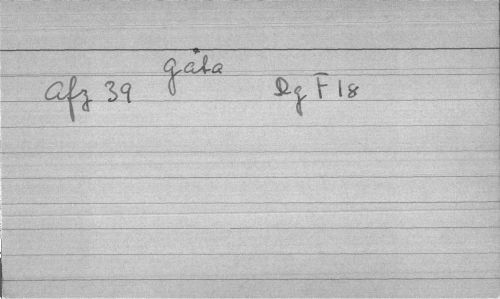 gåta
Afz 39 Dg F 18